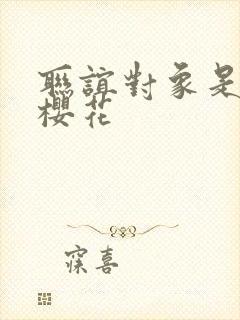 聯誼對象是
櫻花
寐喜